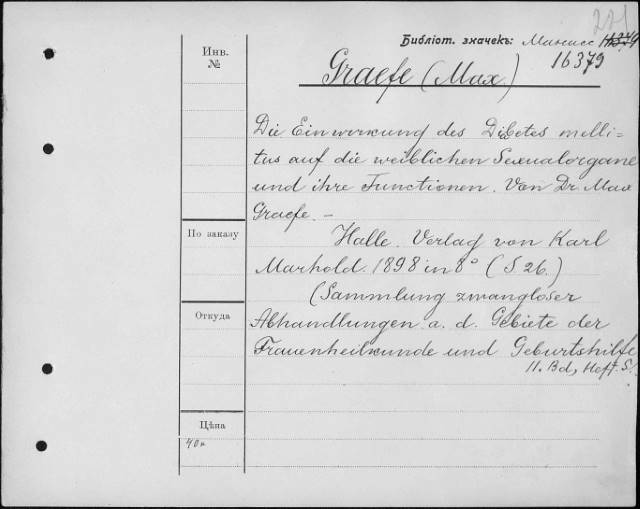 221
Бібліот. значекъ: Маписс 16379
16379
Инв.
№
Graefe (Max)
Die Einwirkung des Diabetes melli=
tus auf die weiblichen Sexualorgane
und ihre Functionen. Von Dr Max
Graefe. —
По заказу
Halle. Verlag von Karl
Marhold. 1898 in 8° (S. 26.)
(Sammlung zwangloser
Откуда
Abhandlungen a. d. Gebiete der
Frauenheilkunde und Geburtshilfe
II. Bd, Heft. 5.)
Цѣна
40к